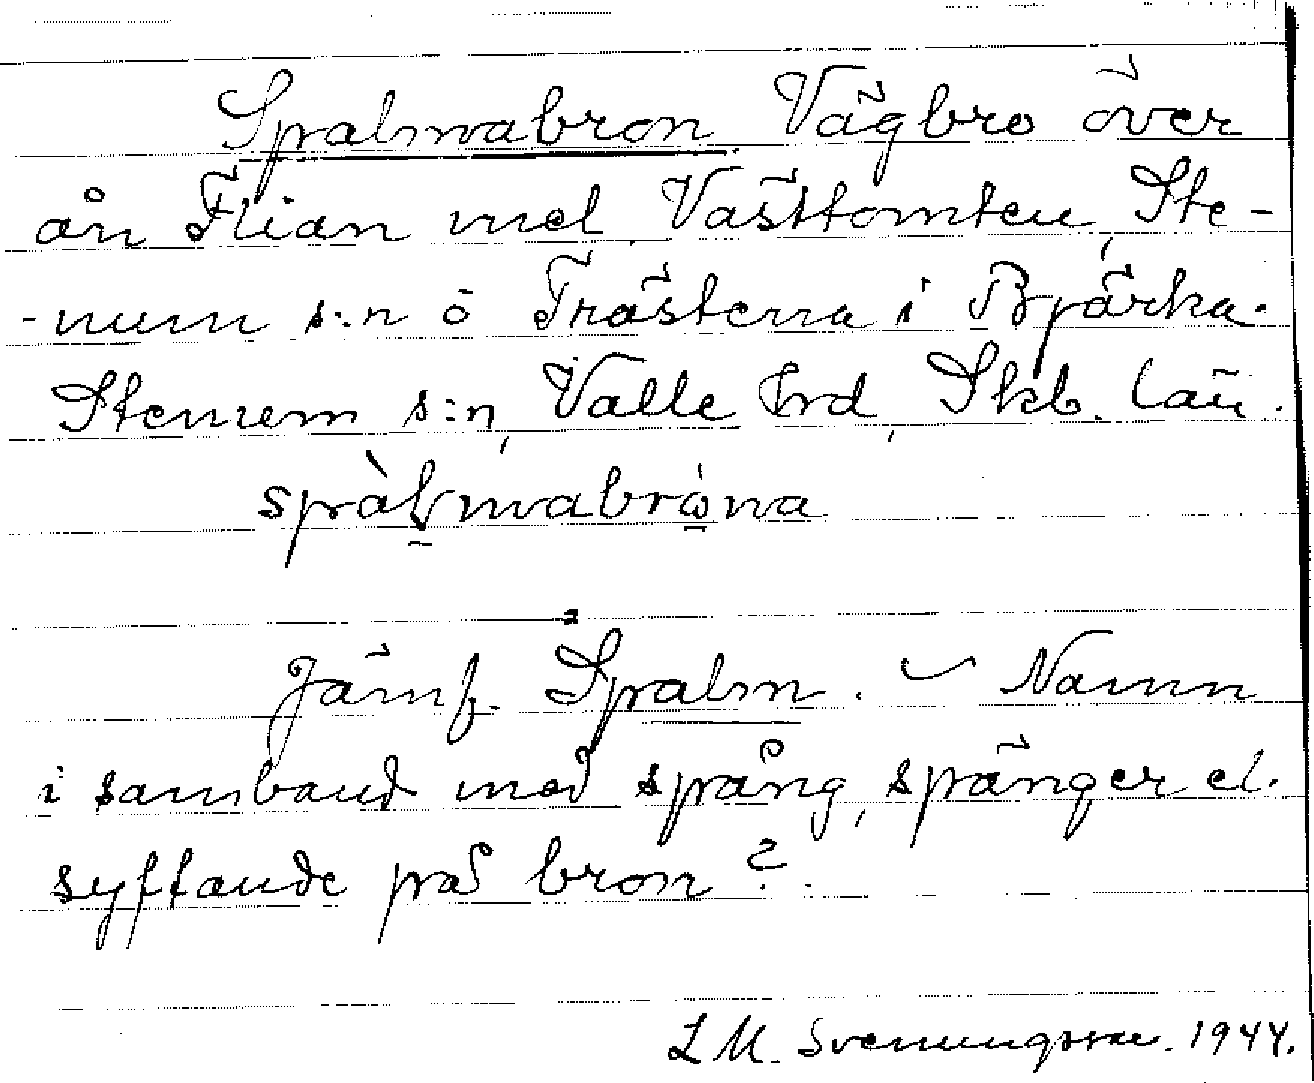 Spalmabron. Vägbro över
ån Flian vid Västtomten, Ste-
-num s:n o Trästena i Bjärka.
Stenum s:n, Valle hrd, Skb. län.
spàlmabròna
Jämf. Spalm. – Namn
i samband med spång, spänger el.
syftande på bron?
L M. Svenungsson. 1944.